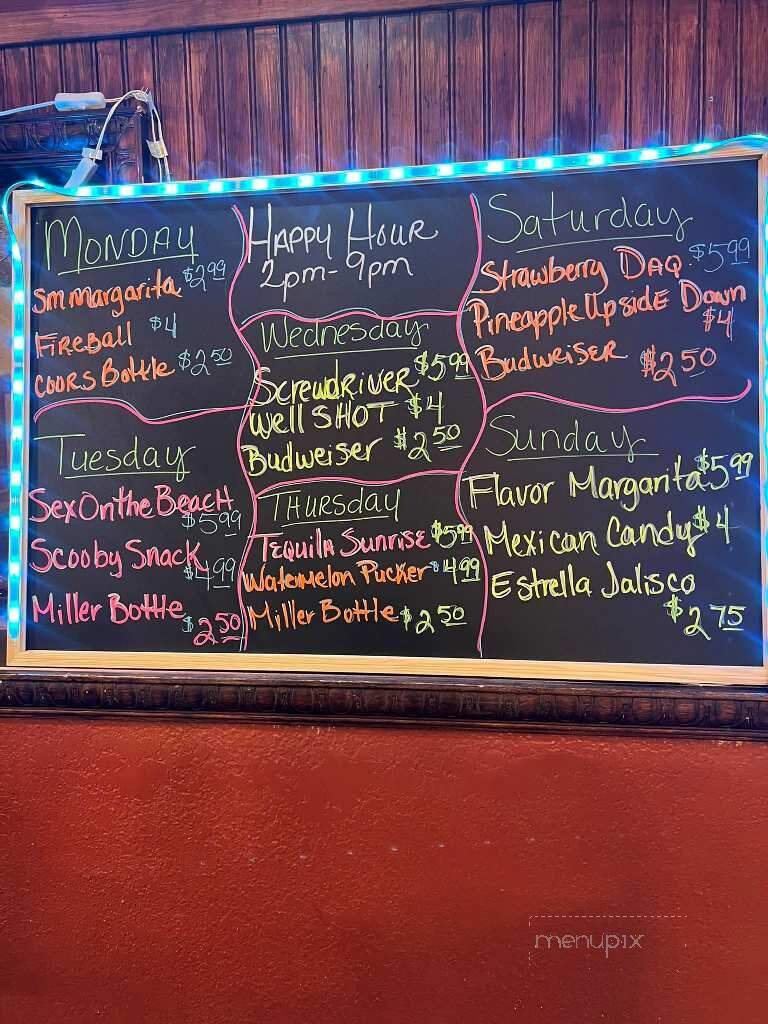 MONDAY
Sm margarita $2.99
FIREBALL $4
COORS Bottle $2.50
Tuesday
Sex On the BEACH
$5.99
Scooby Snack
$4.99
Miller Bottle
$2.50
HAPPY HOUR
2pm-9pm
Wednesday
SCREWDRIVER $5.99
Well SHOT $4
Budweiser $2.50
THURSDAY
TEQUILA SUNRISE $5.99
Watermelon Pucker $4.99
Miller Bottle $2.50
Saturday
Strawberry DAQ. $5.99
Pineapple UpSIDE Down
$4
BudweiSER $2.50
Sunday
Flavor Margarita $5.99
Mexican Candy $4
Estrella Jalisco
$2.75
menupix